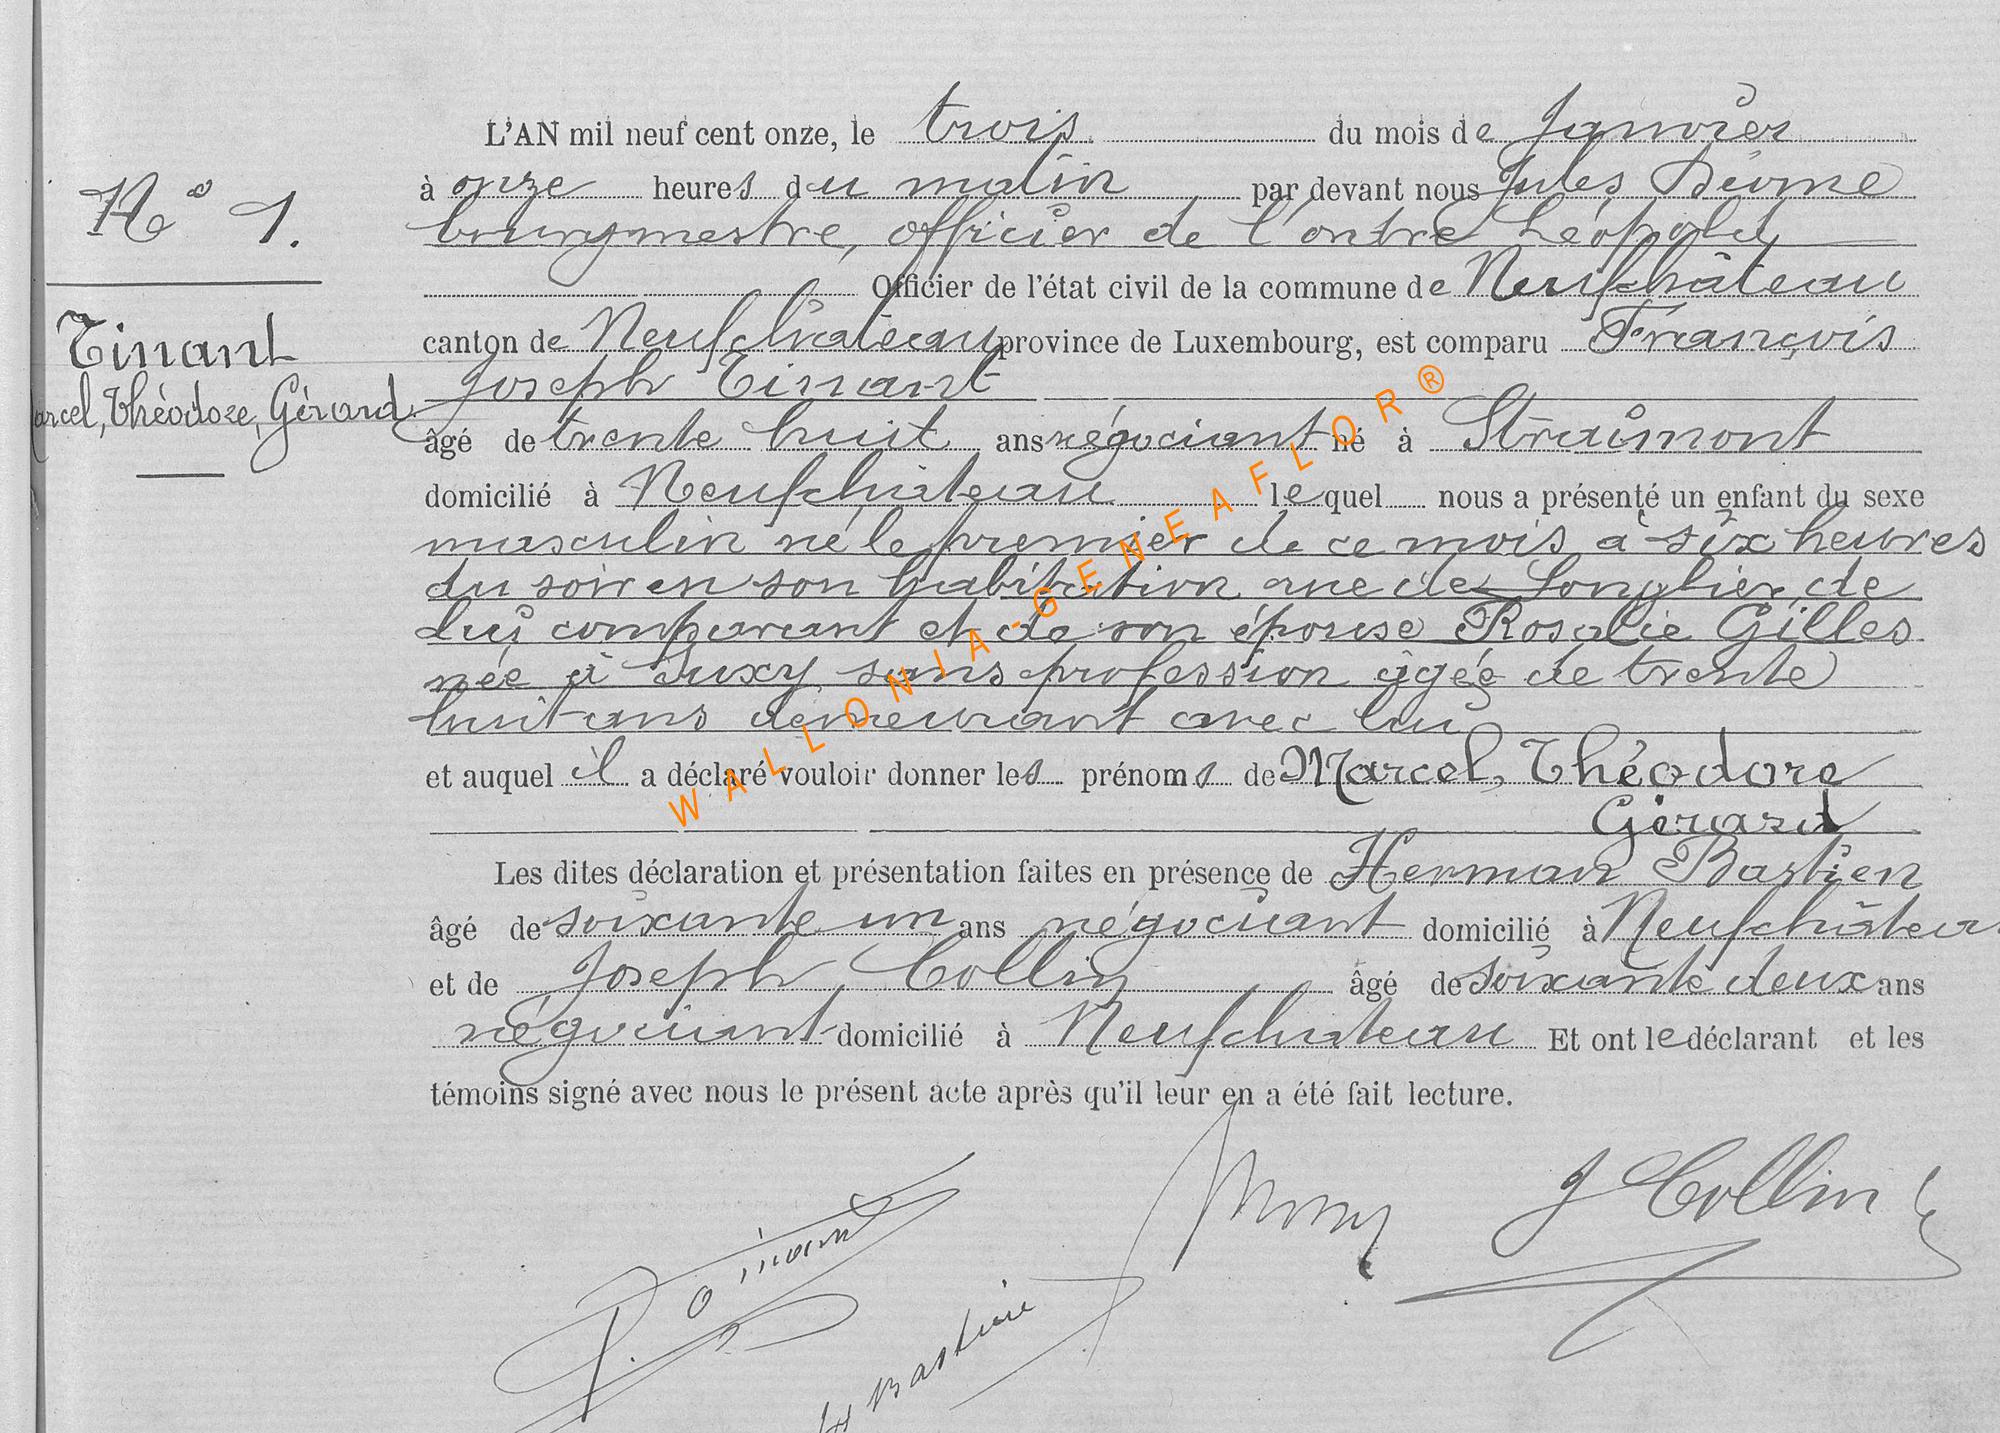 L'AN mil neuf cent onze, le trois du mois de Janvier
à onze heures du matin par devant nous Jules
N° 1.
bourgmestre, officier de l'ordre Léopold
Officier de l'état civil de la commune de Neufchâteau
Tinant
canton de Neufchâteau province de Luxembourg, est comparu François
Joseph Tinant
arcel, Théodore, Gérard
âgé de trente huit ans négociant né à Straimont
domicilié à Neufchâteau lequel nous a présenté un enfant du sexe
masculin né le premier de ce mois à six heures
du soir en son habitation rue de Longlier, de
lui comparant et de son épouse Rosalie Gilles
née à Suxy sans profession âgée de trente
huit ans demeurant avec lui
et auquel il a déclaré vouloir donner les prénoms de Marcel, Théodore
Gérard
Les dites déclaration et présentation faites en présence de Herman Bastien
âgé de soixante un ans négociant domicilié à Neufchâteau
et de Joseph Collin âgé de soixante deux ans
négociant domicilié à Neufchâteau Et ont le déclarant et les
témoins signé avec nous le présent acte après qu'il leur en a été fait lecture.
J Collin
Tinant
H Bastien
WALLONIA-GENEAFLOR®